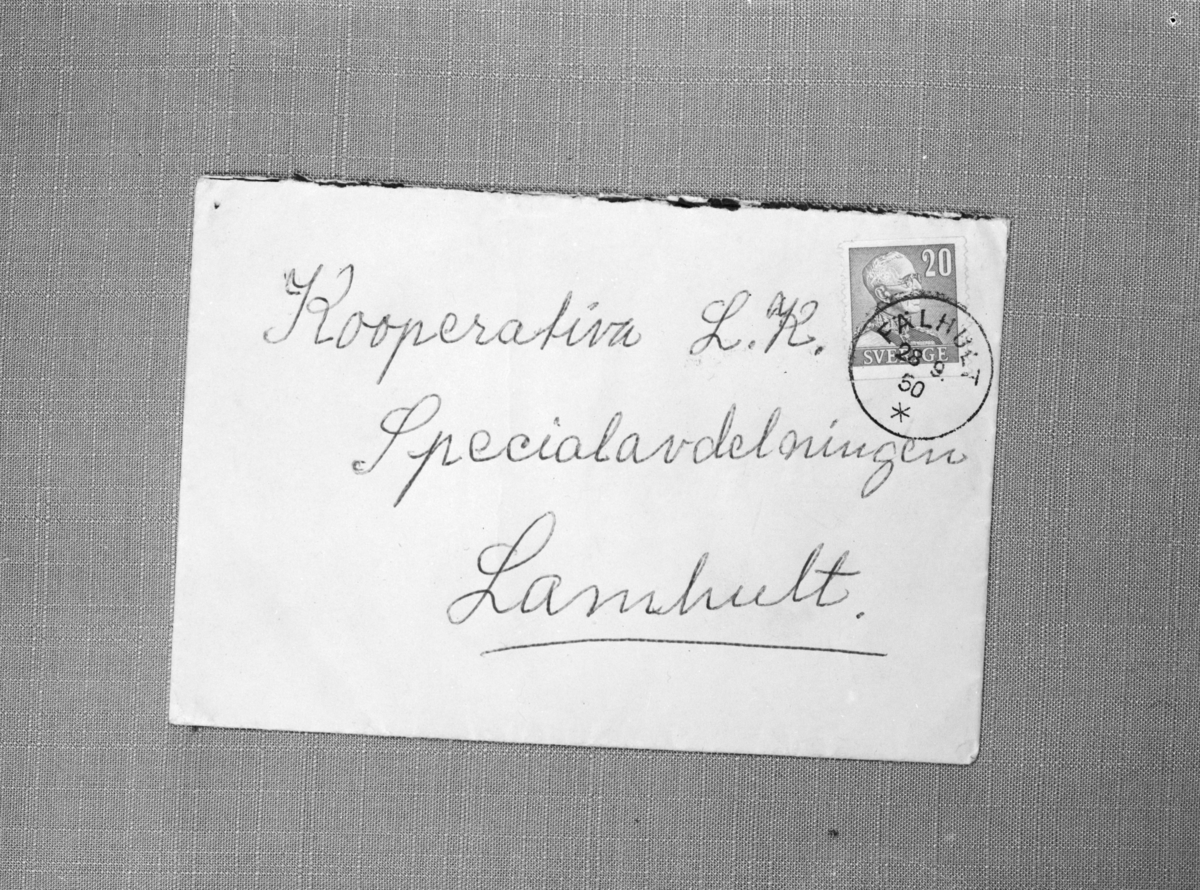 20
SVERIGE
FALHULT
28 9.
50
*
Kooperativa L.K.
Specialavdelningen
Lamhult.